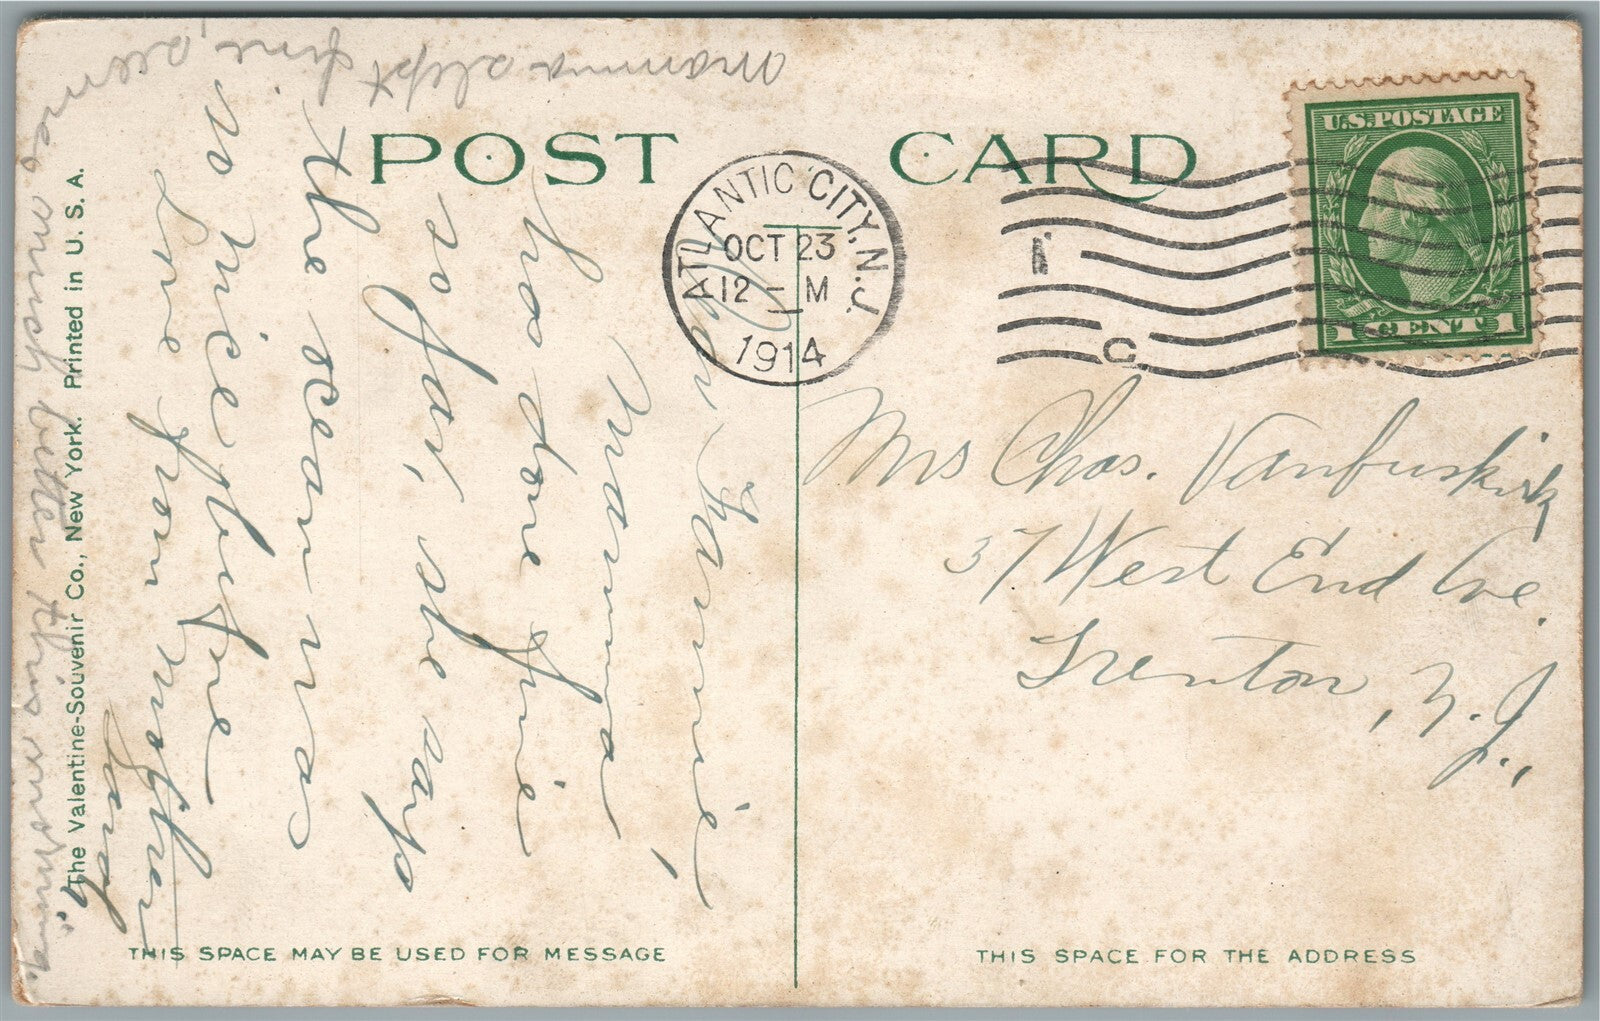 POST CARD
ATLANTIC CITY, N.J.
OCT 23
12 - M
1914
U.S. POSTAGE
1 CENT 1
Mrs Chas. Vanbuskirk
37 West End Ave.
Trenton, N.J.,
Dear Fannie,
Mamma
has done fine
so far, she says
the ocean was
so nice before
Love from Mother
mamma slept fine,
seemes much better this morning.
The Valentine-Souvenir Co., New York. Printed in U. S. A.
THIS SPACE MAY BE USED FOR MESSAGE
THIS SPACE FOR THE ADDRESS